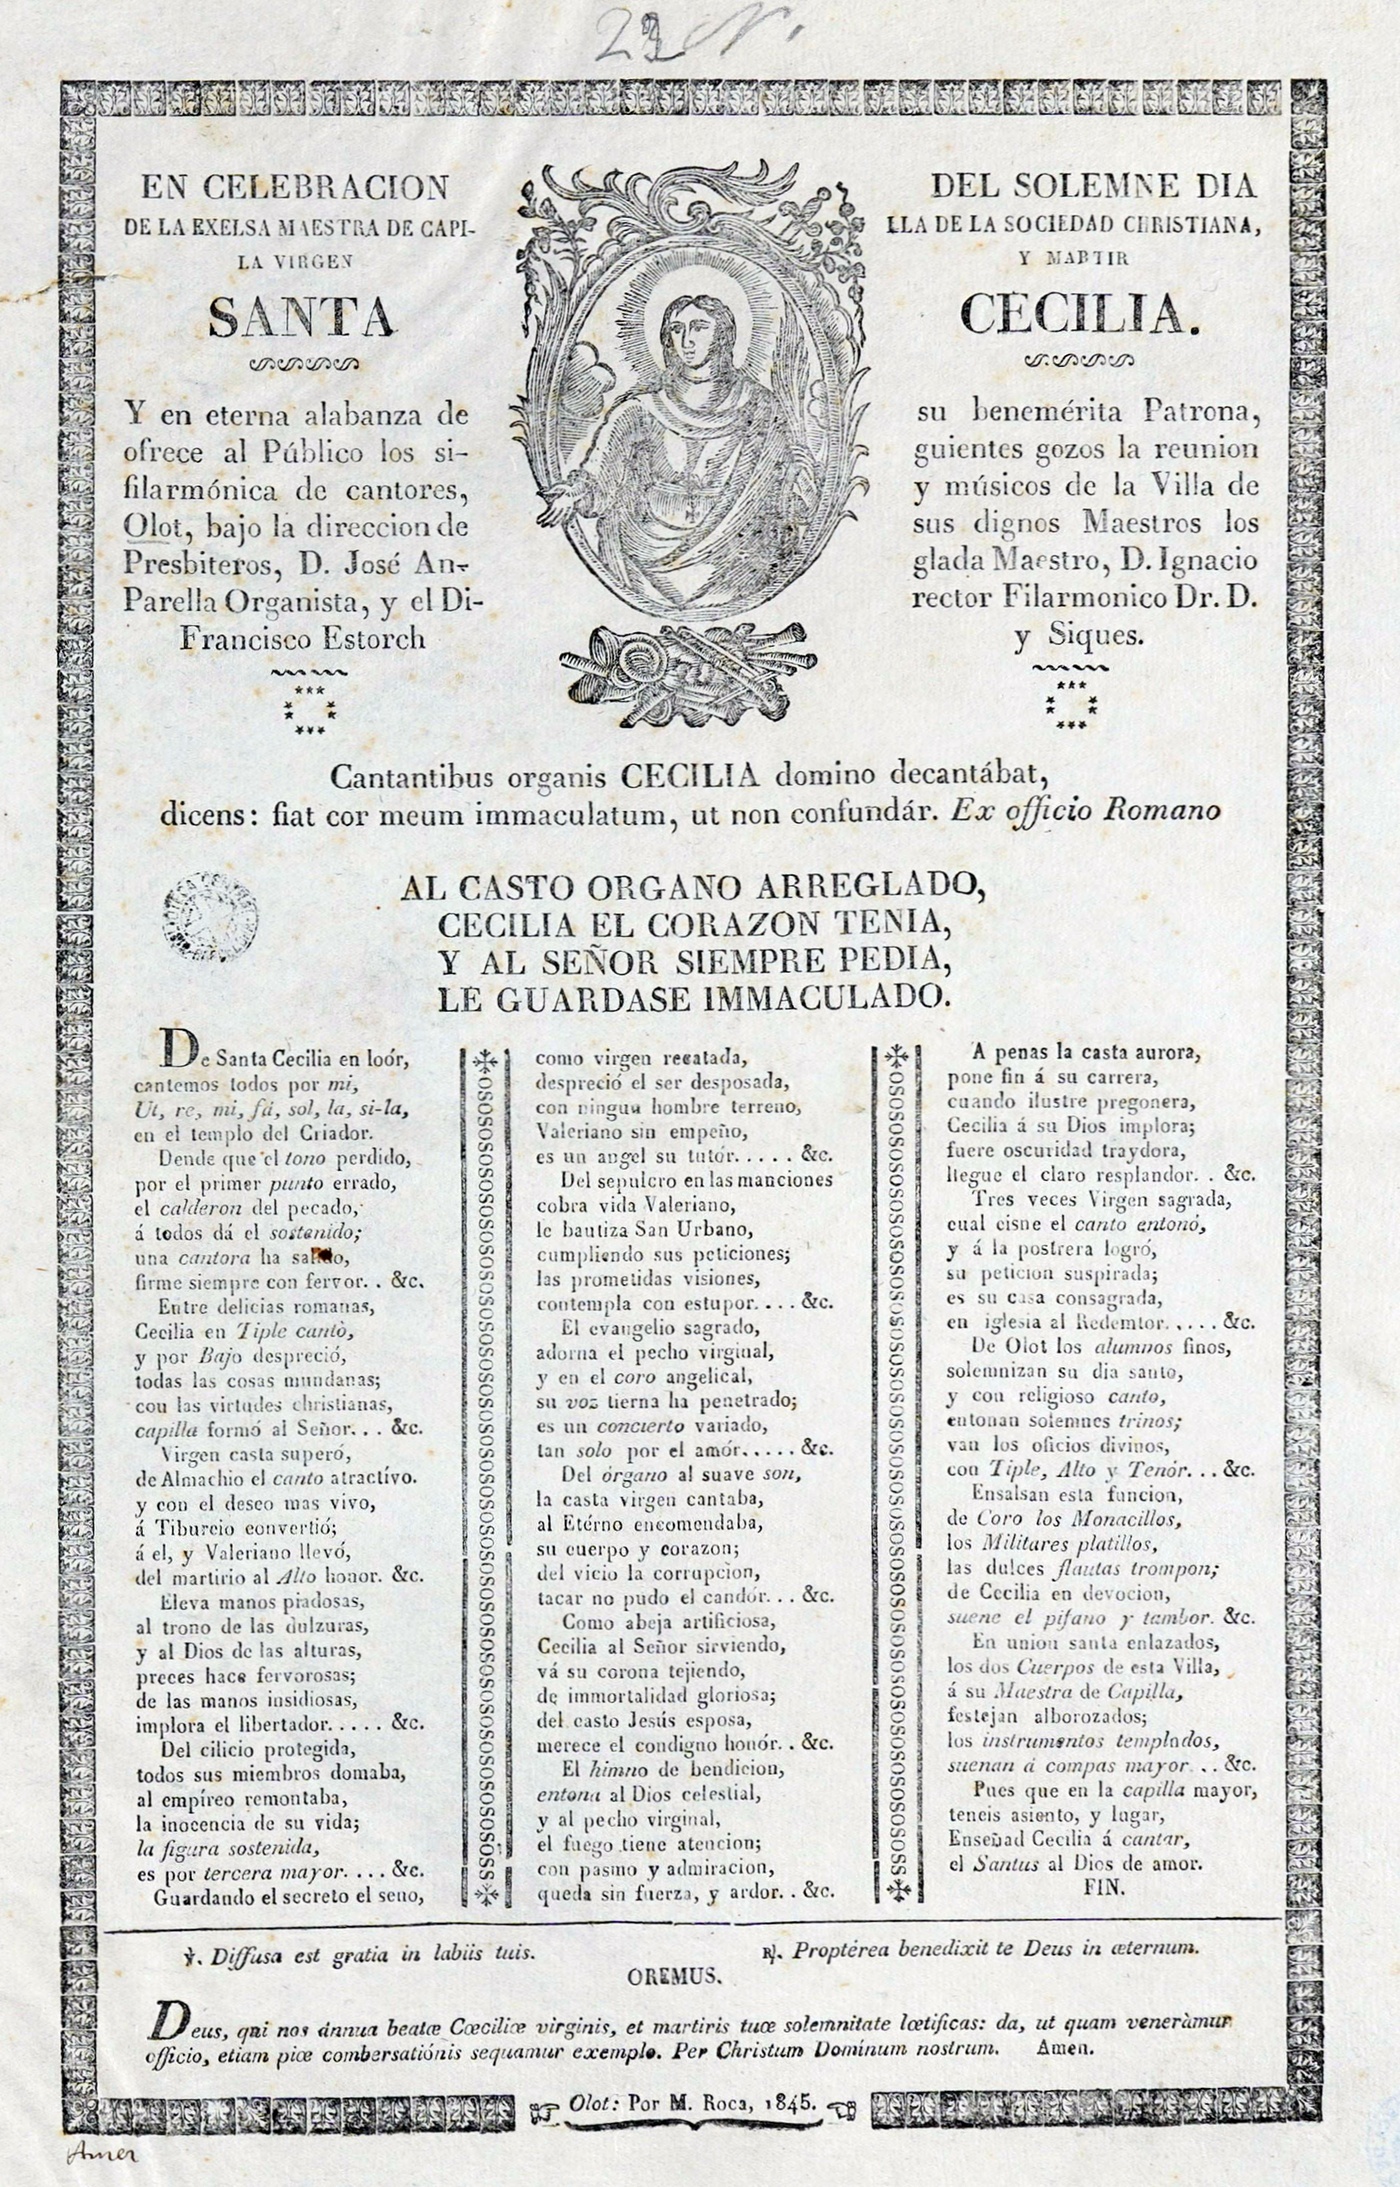 EN CELEBRACION DEL SOLEMNE DIA
DE LA EXELSA MAESTRA DE CAPI- LLA DE LA SOCIEDAD CHRISTIANA,
LA VIRGEN Y MARTIR
SANTA CECILIA.
Y en eterna alabanza de su benemérita Patrona,
ofrece al Público los si- guientes gozos la reunion
filarmónica de cantores, y músicos de la Villa de
Olot, bajo la direccion de sus dignos Maestros los
Presbiteros, D. José An- glada Maestro, D. Ignacio
Parella Organista, y el Di- rector Filarmonico Dr. D.
Francisco Estorch y Siques.
Cantantibus organis CECILIA domino decantábat,
dicens: fiat cor meum immaculatum, ut non confundár. Ex officio Romano
AL CASTO ORGANO ARREGLADO,
CECILIA EL CORAZON TENIA,
Y AL SEÑOR SIEMPRE PEDIA,
LE GUARDASE IMMACULADO.
De Santa Cecilia en loór,
cantemos todos por mi,
Ut, re, mi, fá, sol, la, si-la,
en el templo del Criador.
Dende que el tono perdido,
por el primer punto errado,
el calderon del pecado,
á todos dá el sostenido;
una cantora ha salido,
firme siempre con fervor. . &c.
Entre delicias romanas,
Cecilia en Tiple cantò,
y por Bajo despreció,
todas las cosas mundanas;
con las virtudes christianas,
capilla formó al Señor. . . &c.
Virgen casta superó,
de Almachio el canto atractívo.
y con el deseo mas vivo,
á Tiburcio convertió;
á el, y Valeriano llevó,
del martirio al Alto honor. &c.
Eleva manos piadosas,
al trono de las dulzuras,
y al Dios de las alturas,
preces hace fervorosas;
de las manos insidiosas,
implora el libertador. . . . . &c.
Del cilicio protegida,
todos sus miembros domaba,
al empíreo remontaba,
la inocencia de su vida;
la figura sostenida,
es por tercera mayor. . . . &c.
Guardando el secreto el seno,
como virgen recatada,
despreció el ser desposada,
con ningun hombre terreno,
Valeriano sin empeño,
es un angel su tutór. . . . . &c.
Del sepulcro en las manciones
cobra vida Valeriano,
le bautiza San Urbano,
cumpliendo sus peticiones;
las prometidas visiones,
contempla con estupor. . . . &c.
El evangelio sagrado,
adorna el pecho virginal,
y en el coro angelical,
su voz tierna ha penetrado;
es un concierto variado,
tan solo por el amór. . . . . &c.
Del órgano al suave son,
la casta virgen cantaba,
al Etérno encomendaba,
su cuerpo y corazon;
del vicio la corrupcion,
tacar no pudo el candór. . . &c.
Como abeja artificiosa,
Cecilia al Señor sirviendo,
vá su corona tejiendo,
de immortalidad gloriosa;
del casto Jesús esposa,
merece el condigno honór. . &c.
El himno de bendicion,
entona al Dios celestial,
y al pecho virginal,
el fuego tiene atencion;
con pasmo y admiracion,
queda sin fuerza, y ardor. . &c.
A penas la casta aurora,
pone fin á su carrera,
cuando ilustre pregonera,
Cecilia á su Dios implora;
fuere oscuridad traydora,
llegue el claro resplandor. . &c.
Tres veces Virgen sagrada,
cual cisne el canto entonó,
y á la postrera logró,
su peticion suspirada;
es su casa consagrada,
en iglesia al Redemtor. . . . . &c.
De Olot los alumnos finos,
solemnizan su dia santo,
y con religioso canto,
entonan solemnes trinos;
van los oficios divinos,
con Tiple, Alto y Tenór. . . &c.
Ensalsan esta funcion,
de Coro los Monacillos,
los Militares platillos,
las dulces flautas trompon;
de Cecilia en devocion,
suene el pifano y tambor. &c.
En union santa enlazados,
los dos Cuerpos de esta Villa,
á su Maestra de Capilla,
festejan alborozados;
los instrumentos templados,
suenan á compas mayor. . . &c.
Pues que en la capilla mayor,
teneis asiento, y lugar,
Enseñad Cecilia á cantar,
el Santus al Dios de amor.
FIN.
℣. Diffusa est gratia in labiis tuis. ℟. Proptérea benedixit te Deus in æternum.
OREMUS.
Deus, qui nos ánnua beatæ Cœciliæ virginis, et martiris tuæ solemnitate lœtificas: da, ut quam veneràmur
officio, etiam piæ combersatiónis sequamur exemplo. Per Christum Domínum nostrum. Amen.
Olot: Por M. Roca, 1845.
Amer